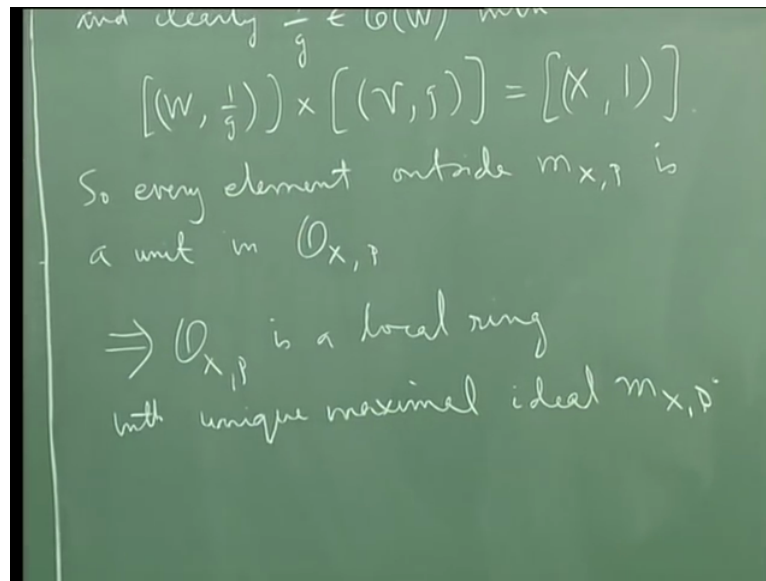 and clearly 1/g ∈ O(W) with
[(W, 1/g)] × [(V, g)] = [(X, 1)].
So every element outside m_{X,P} is
a unit in O_{X,P}
⇒ O_{X,P} is a local ring
with unique maximal ideal m_{X,P}.